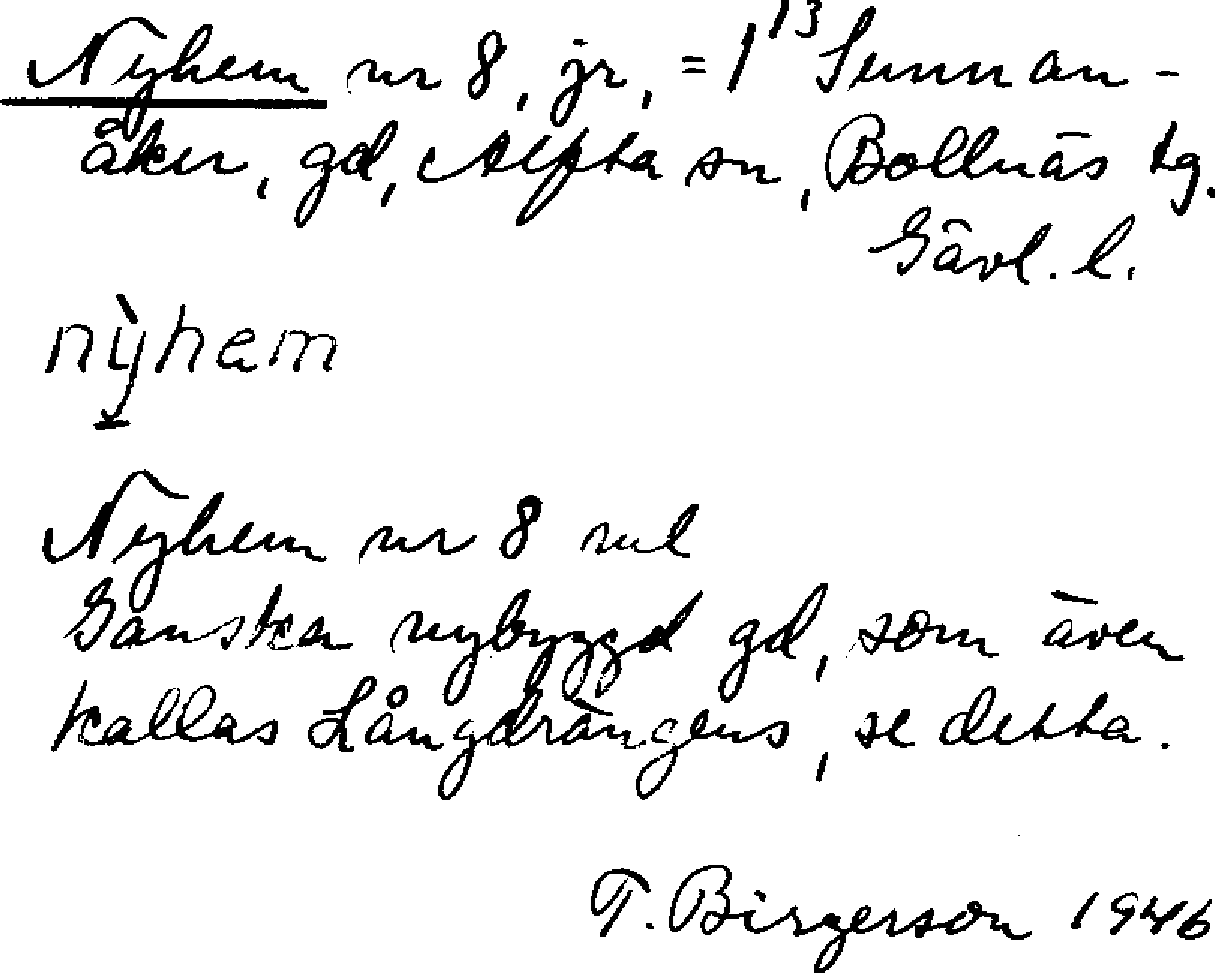 Nyhem nr 8, jr, = 1¹³ Sunnan-
åker, gd, Alfta sn, Bollnäs tg.
Gävl. l.
nỳhem
Nyhem nr 8 rul
Ganska nybyggd gd, som även
kallas Långdrängens, se detta.
T. Birgerson 1946